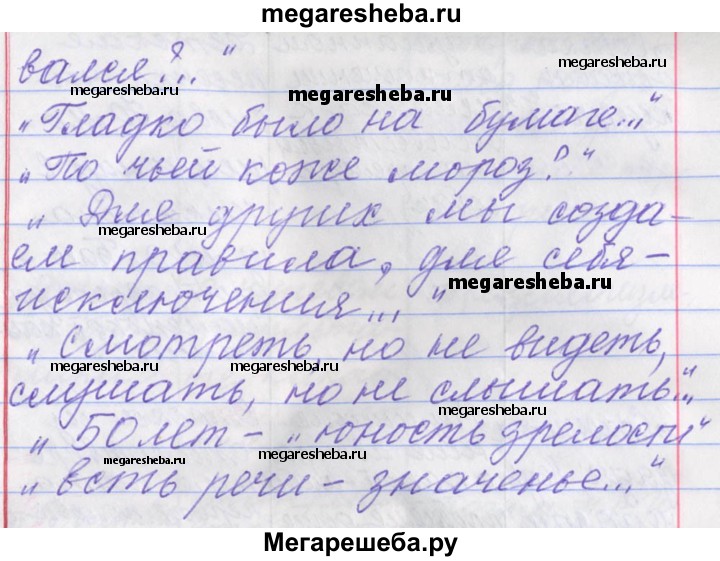 megaresheba.ru
вался?.."
megaresheba.ru
megaresheba.ru
„Гладко было на бумаге..."
„По чьей коже мороз?.."
megaresheba.ru
„Для других мы созда-
megaresheba.ru
ем правила, для себя –
megaresheba.ru
исключения..."
„Смотреть, но не видеть,
megaresheba.ru
megaresheba.ru
слушать, но не слышать..."
megaresheba.ru
„50 лет – „юность зрелости"
megaresheba.ru
megaresheba.ru
„Есть речи – значенье..."
Мегарешеба.ру